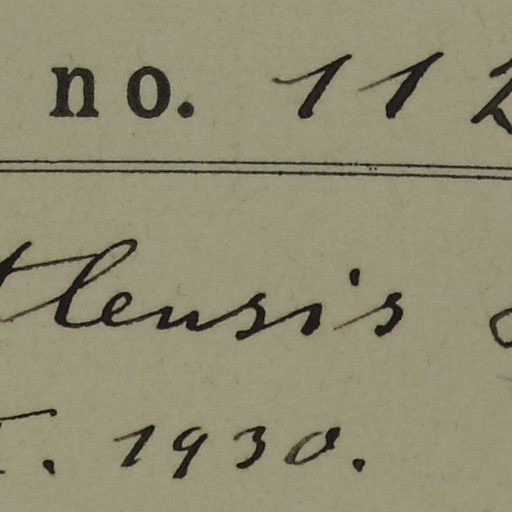 no. 112
tlensis
I. 1930.